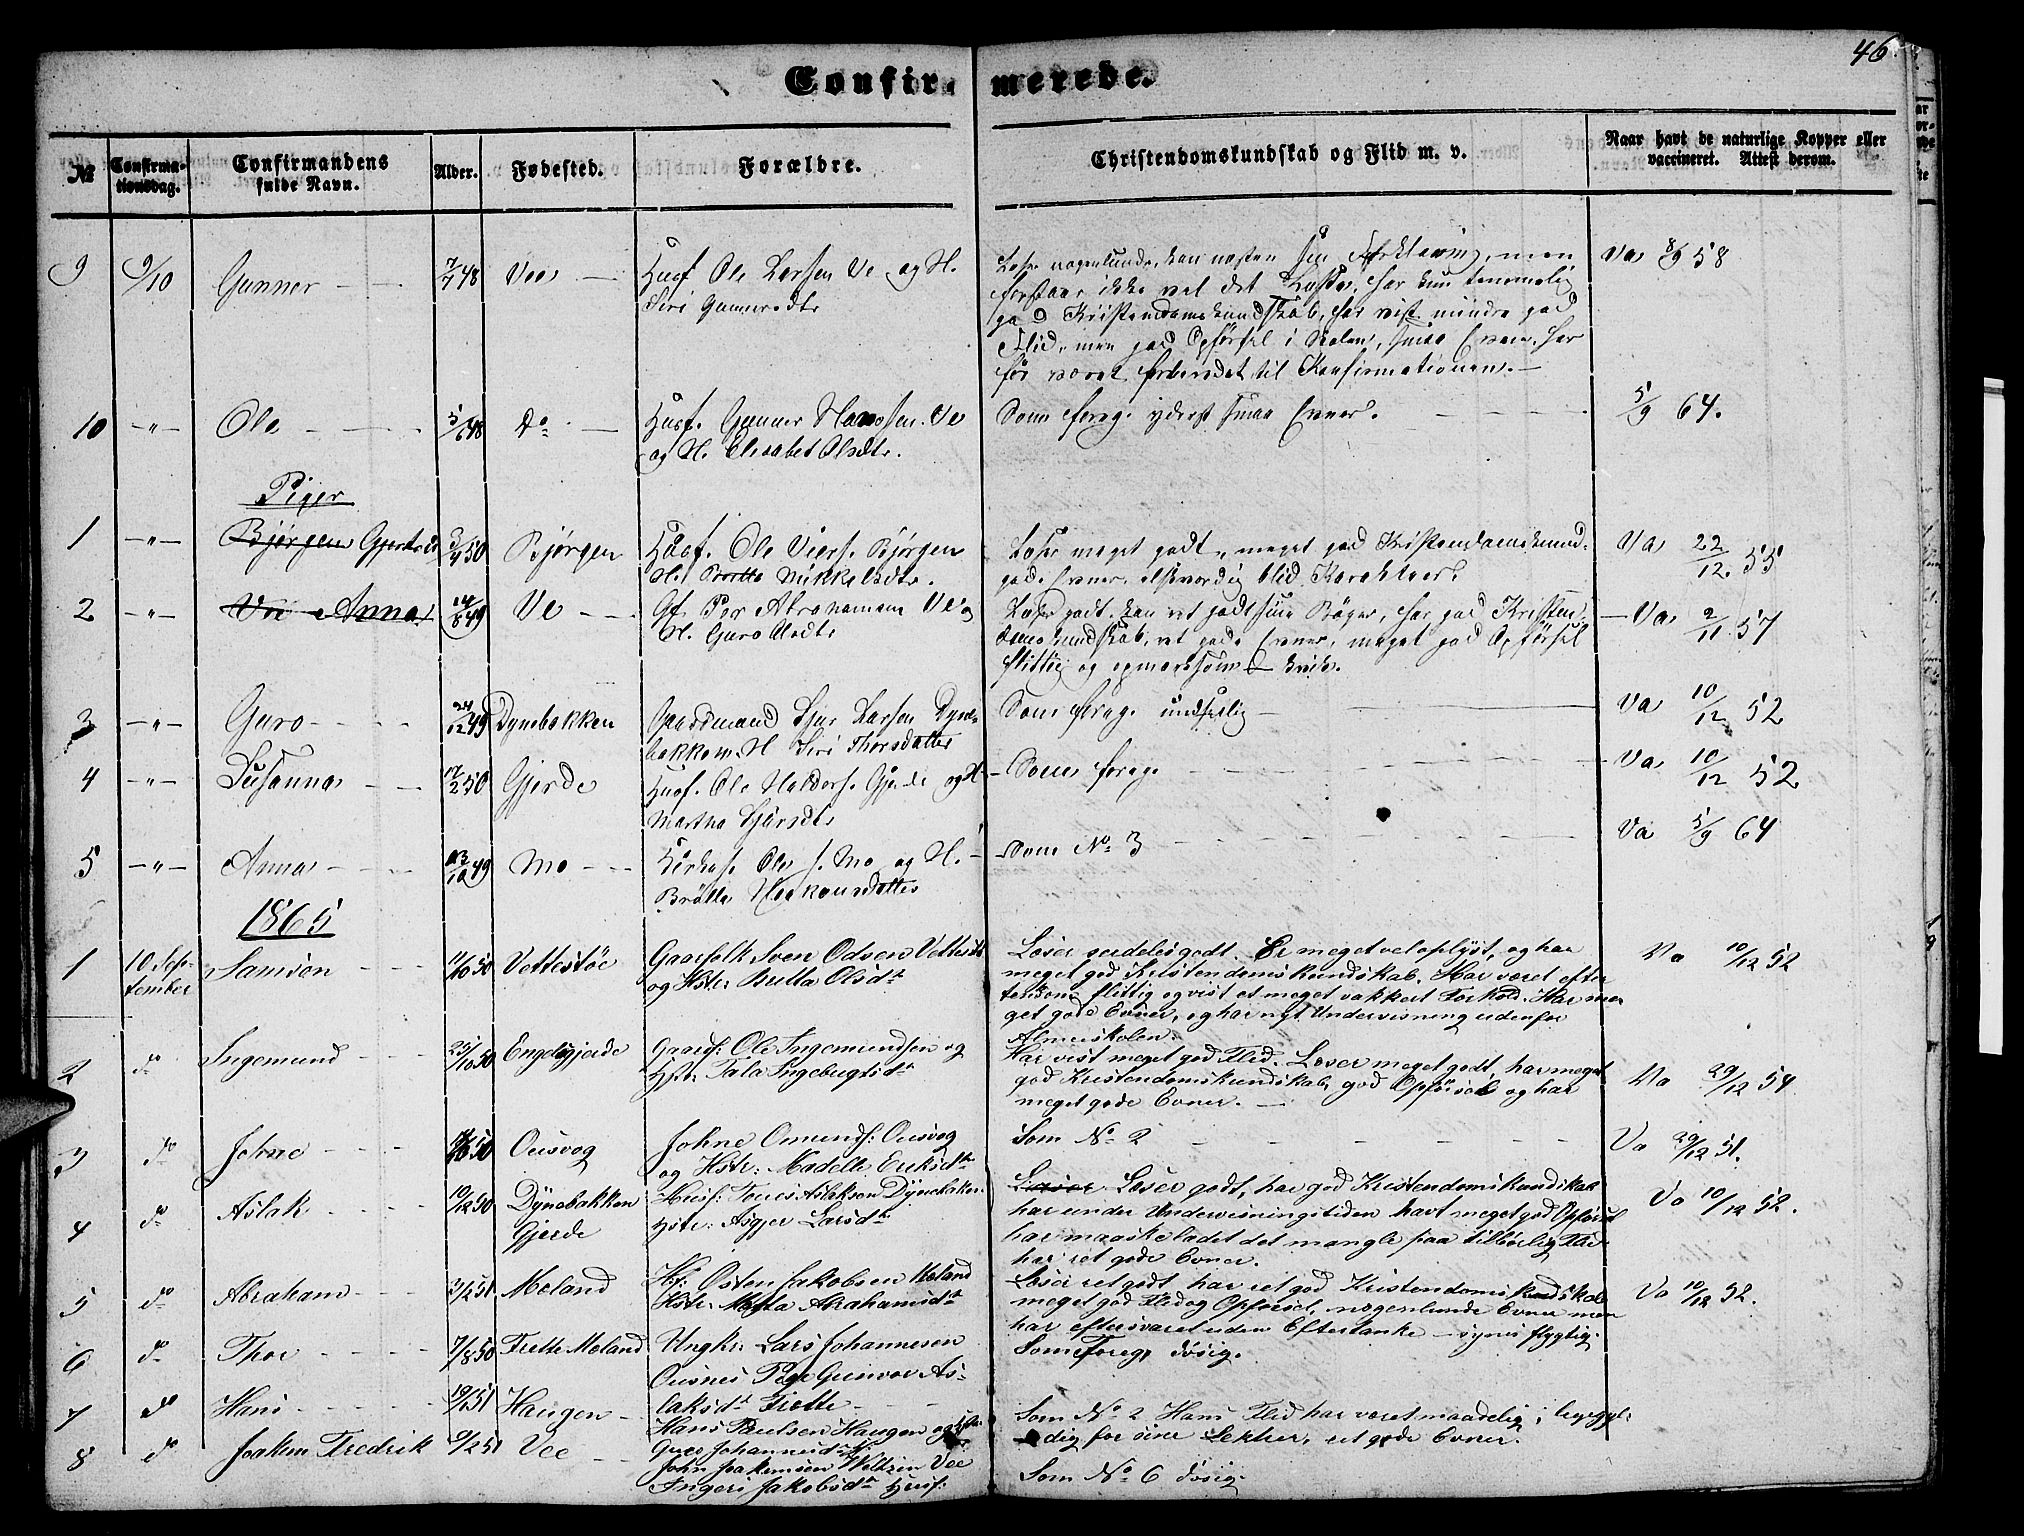 46
Confirmerede.
№
Confirmationsdag.
Confirmandens fulde Navn.
Alder.
Fødested.
Forældre.
Christendomskundskab og Flid m. v.
Naar havt de naturlige Kopper eller
vaccineret. Attest derom.
9 9/10 Gunner 7/7 48 Vee Husf Ole Larsen Ve og H.
Siri Gunnersdtr
men Va 8/9 58
forstaar ikke vel det Læste, har kun temmelig
god Kristendomskundskab, har vist mindre god
Flid, men god Opførsel i Skolen, smaa Evner, har
før været forberedet til Konfirmationen.
10 -"- Ole 5/6 48 Do Husf. Gunner Hansen Ve
og H. Elisabet Olsdtr.
Som forrige yderst smaa Evner. 5/9 64.
Piger
1 -"- Bjørgen Gjertrud 3/4 50 Bjørgen Husf. OleViers. Bjørgen
H. Britta Mikkelsdtr.
Læser meget godt, meget god Kristendomskund-
gode Evner, elskværdig blid Karakteer.
Va 22/12. 55
2 -"- Ve Anna 14/8 49 Ve Gf. Per Abrahamsen Ve og
H. Guro Olsdtr
Læser godt, kan ret godt sine Bøger, har god Kristen-
domskundskab, ret gode Evner, meget god Opførsel
flittig og opmærksom kvik.
Va 2/11. 57
3 -"- Guro 24/12 49 Dynebakken Gaardmand Sjur Larsen Dyne-
bakken. H Siri Thorsdatter
Som forrige undseelig Va 10/12 52
4 -"- Susanna 17/2 50 Gjerde Husf. Ole Haldors. Gjerde og H
Martha Sjursdtr
Som forrige Va 10/12 52.
5 -"- Anna 13/10 49 Mo Ole s. Mo og H.
Britta Haakonsdatter
Som No 3 Va 5/9 64
1865
1 10 Sep-
tember Samson 11/10 50 Vettestøe Gaarfolk Sven Odsen Vettestø
og Hstr: Britta Olsdtr
Læser serdeles godt. Er meget vel oplyst, og har
meget god Kristendomskundskab. Har været efter
tænksom, flittig og vist et meget vakkert Forhold. Har me
get gode Evner, og har nyt Undervisning udenfor
Almueskolen.
Va 10/12 52
2 do Ingemund 25/10 50 Engelsgjerde Gaardf: Ole Ingemundsen og
Hstr: Pala Ingebrigtsdtr
Har vist meget god Flid. Læser meget godt, har meget
god Kristendomskundskab, god Opførsel og har
meget gode Evner.
Va 29/12 54
3 do Johne 50 Ousvog Johne Omunds: Ousvog
og Hstr: Madelle Eriksdtr
Som No 2 Va 29/12 51.
4 do Aslak 10/12 50 Dynebakken
Gjerde
Husf: Tønes Aslaksen Dynebakken
Hstr: Asgjer Larsdtr
Læser Læser godt, har god Kristendomskundskab
har under Undervisningstiden havt meget god Opførsel
har maaske ladet det mangle paa tilbørlig Flid
har ret gode Evner.
Va 10/12 52.
5 do Abraham 3/2 51 Moland Hf: Østen Jakobsen Moland
Hstr: Marta Abrahamsdtr
Læser ret godt har ret god Kristendomskundskab
meget god Flid og Opførsel, nogenlunde Evner men
har eftersvaret uden Eftertanke – synes flygtig.
Va 10/12 52.
6 do Thor 7/8 50 Frette Moland Ungkr: Lars Johannesen
Ousnes Pige Gunvor As-
laksdtr Frette
Som Forrige døsig.
7 do Hans 19/1 51 Haugen
Hans Paulsen Haugen og Hstr
Guro Johannesdtr
Som No 2 Hans Flid har været maadelig;
dig for sine Lektier, ret gode Evner.
8 do Joakim Fredrik 9/2 51 Vee
John Joakimsen Weltzin Vee
Ingeri Jakobsdtr Husf:
Som No 6 døsig.